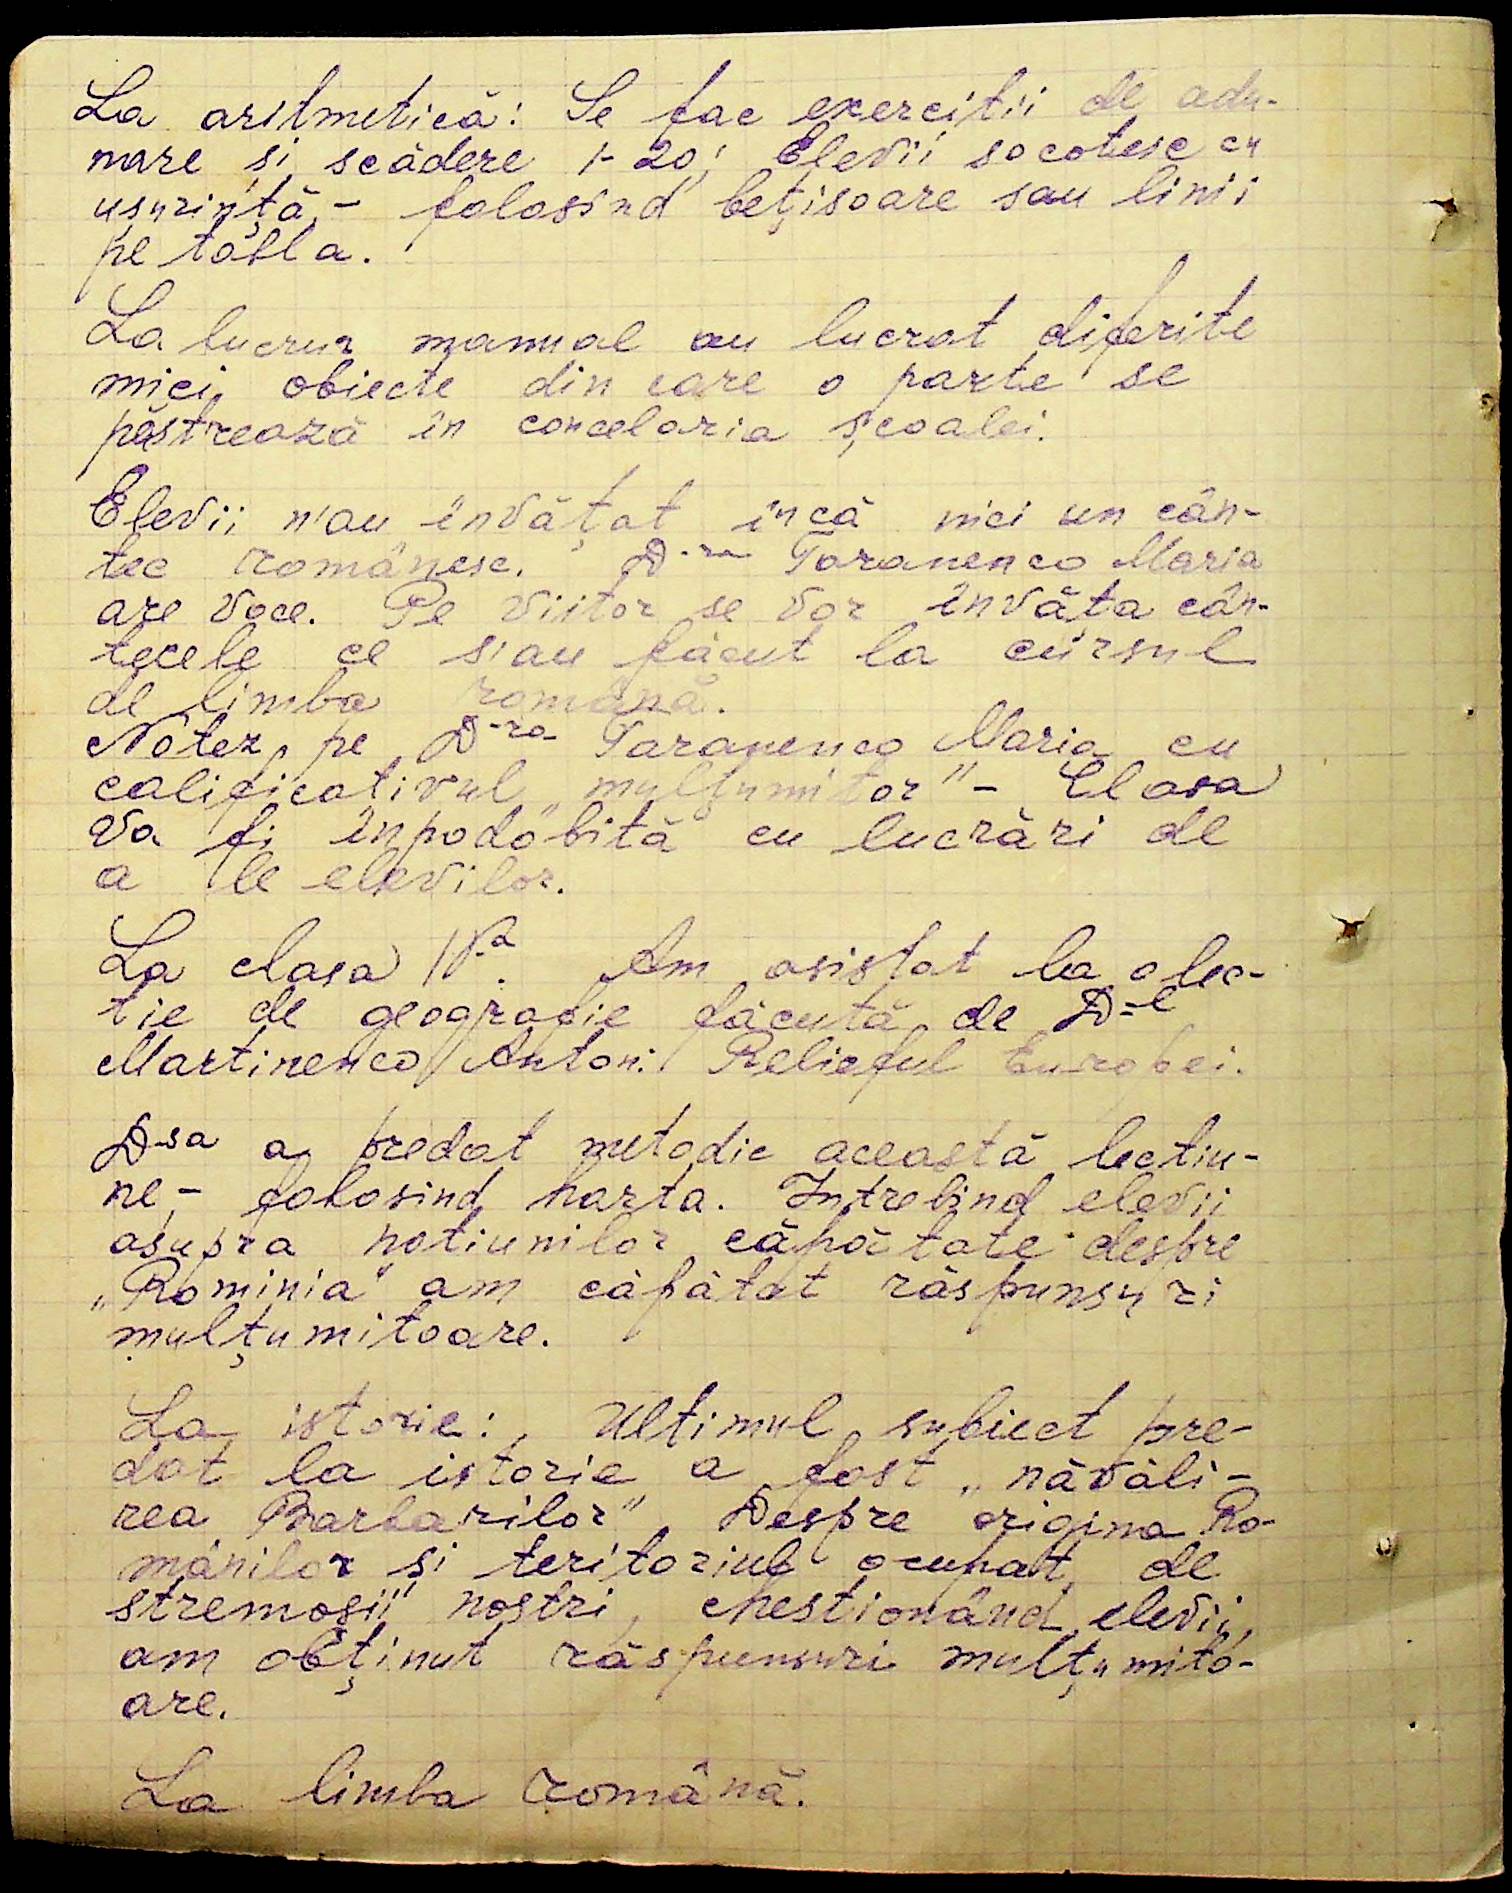 La aritmetică: Se fac exercitii de adu-
nare și scădere 1-20; Elevii socotesc cu
ușurință, - folosind bețisoare sau linii
pe tabla.
La lucrur manual au lucrat diferite
mici obiecte din care o parte se
păstrează în concelaria școalei.
Elevii n'au învățat încă nici un cân-
tec românesc. D-ra Taranenco Maria
are voce. Pe viitor se vor învăta cân-
tecele ce s'au făcut la cursul
de limba română.
Notez pe D-ra Taranenco Maria cu
calificativul „mulțumitor" - Clasa
va fi înpodobită cu lucrări de
a le elevilor.
La clasa IV-a. Am asistat la o lec-
tie de geografie făcută de D-l
Martinenco Anton: Relieful Europei.
D-sa a predat metodic această lectiu-
ne, - folosind harta. Intrebind elevii
asupra notiunilor căpătate despre
„Rominia" am căpătat răspunsuri
mulțumitoare.
La istorie: Ultimul subiect pre-
dat la istorie a fost „năvăli-
rea Barbarilor" Despre origina Ro-
mânilor și teritoriul ocupat de
stremosii nostri, chestionând elevii,
am obținut răspunsuri mulțumito-
are.
La limba română.